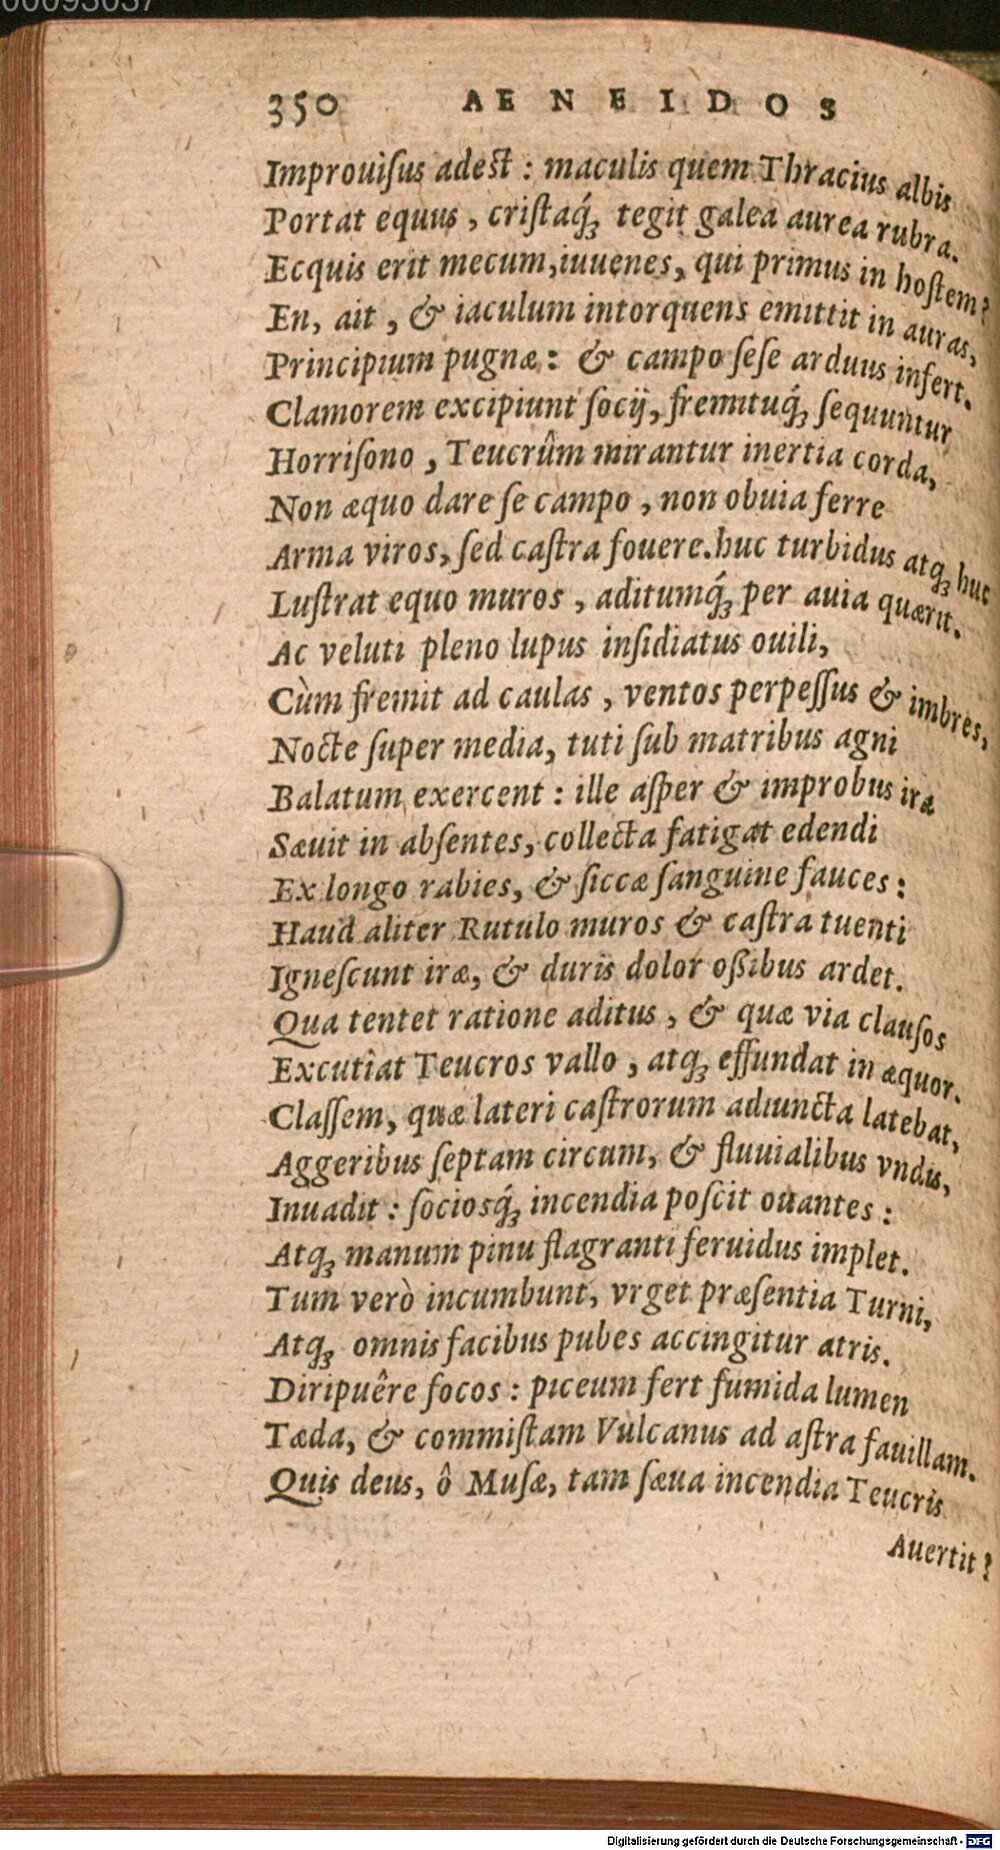 00093037
350 AENEIDOS
Improuiſus adest : maculis quem Thracius albis
Portat equus , criſtaq́ꝫ tegit galea aurea rubra.
Ecquis erit mecum,iuuenes, qui primus in hoſtem?
En, ait , & iaculum intorquens emittit in auras,
Principium pugnæ: & campo ſeſe arduus infert.
Clamorem excipiunt ſocij, fremituq́ꝫ ſequuntur
Horriſono , Teucrûm mirantur inertia corda,
Non æquo dare ſe campo , non obuia ferre
Arma viros, ſed caſtra fouere.huc turbidus atqꝫ huc
Luſtrat equo muros , aditumq́ꝫ per auia quærit.
Ac veluti pleno lupus inſidiatus ouili,
Cùm fremit ad caulas , ventos perpeſſus & imbres,
Nocte ſuper media, tuti ſub matribus agni
Balatum exercent : ille aſper & improbus ira
Sæuit in abſentes, collecta fatigat edendi
Ex longo rabies, & ſiccæ ſanguine fauces :
Haud aliter Rutulo muros & caſtra tuenti
Igneſcunt iræ, & duris dolor oßibus ardet.
Qua tentet ratione aditus , & quæ via clauſos
Excutiat Teucros vallo , atqꝫ effundat in æquor.
Claſſem, quæ lateri caſtrorum adiuncta latebat,
Aggeribus ſeptam circum, & fluuialibus vndis,
Inuadit : ſociosq́ꝫ incendia poſcit ouantes :
Atqꝫ manum pinu flagranti feruidus implet.
Tum verò incumbunt, vrget præſentia Turni,
Atqꝫ omnis facibus pubes accingitur atris.
Diripuêre focos : piceum fert fumida lumen
Tæda, & commiſtam Vulcanus ad aſtra fauillam.
Quis deus, ô Muſæ, tam ſæua incendia Teucris
Auertit ?
Digitalisierung gefördert durch die Deutsche Forschungsgemeinschaft - DFG